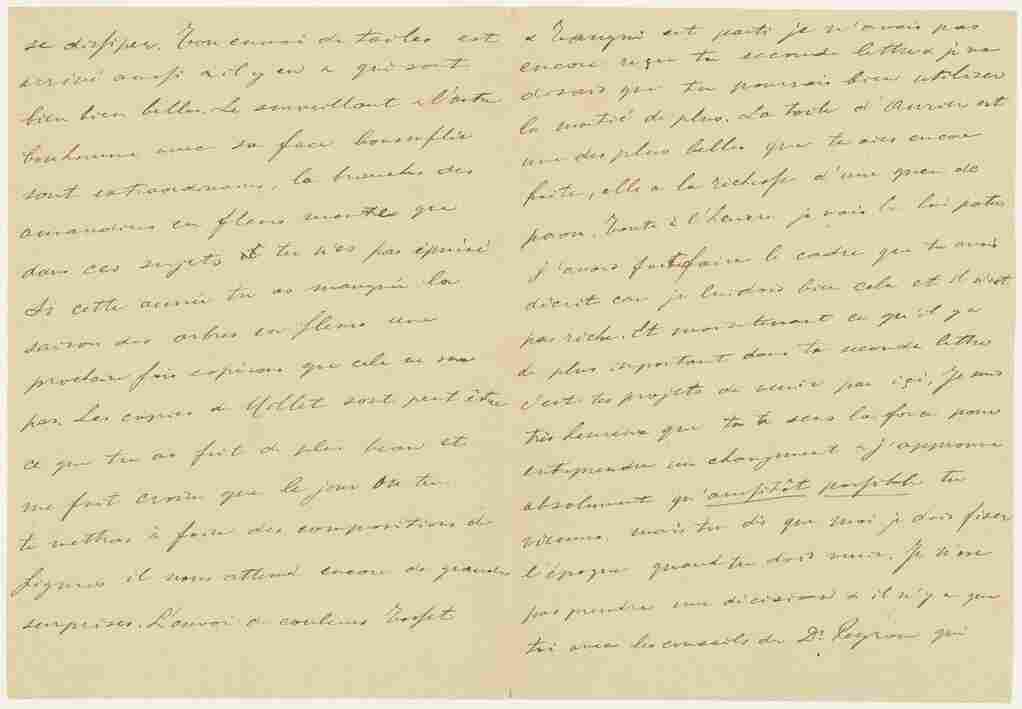 se dissiper. Ton envoi de toiles est
arrivé aussi & il y en a qui sont
bien bien belles. Le surveillant & l'autre
bonhomme avec sa face boursouflée
sont extraordinaires, la branche des
amandiers en fleurs montre que
dans ces sujets tu n'es pas épuisé
Si cette année tu as manqué la
saison des arbres en fleurs une
prochaine fois espérons que cela ne sera
pas. Les copies de Millet sont peut être
ce que tu as fait de plus beau et
me font croire que le jour où tu
te mettras à faire des compositions de
figures il nous attend encore de grandes
surprises. L'envoi de couleurs Tasset
& Tanguy est parti je n'avais pas
encore reçu ta seconde lettre & je me
disais que tu pourrais bien utiliser
la moitié de plus. La toile d'Aurier est
une des plus belles que tu aies encore
faite, elle a la richesse d'une queu de
paon. Toute à l'heure je vais la lui porter
j'avais fait faire le cadre que tu avais
décrit car je lui dois bien cela et il n'est
pas riche. Et maintenant ce qu'il y a
de plus important dans ta seconde lettre
c'est tes projets de venir par içi. Je suis
très heureux que tu te sens la force pour
entreprendre un changement & j'approuve
absolument qu'aussitôt possible tu
viennes, mais tu dis que moi je dois fixer
l'époque quand tu dois venir. Je n'ose
pas prendre une décision & il n'y a que
toi avec les conseils de Dr. Peyron qui